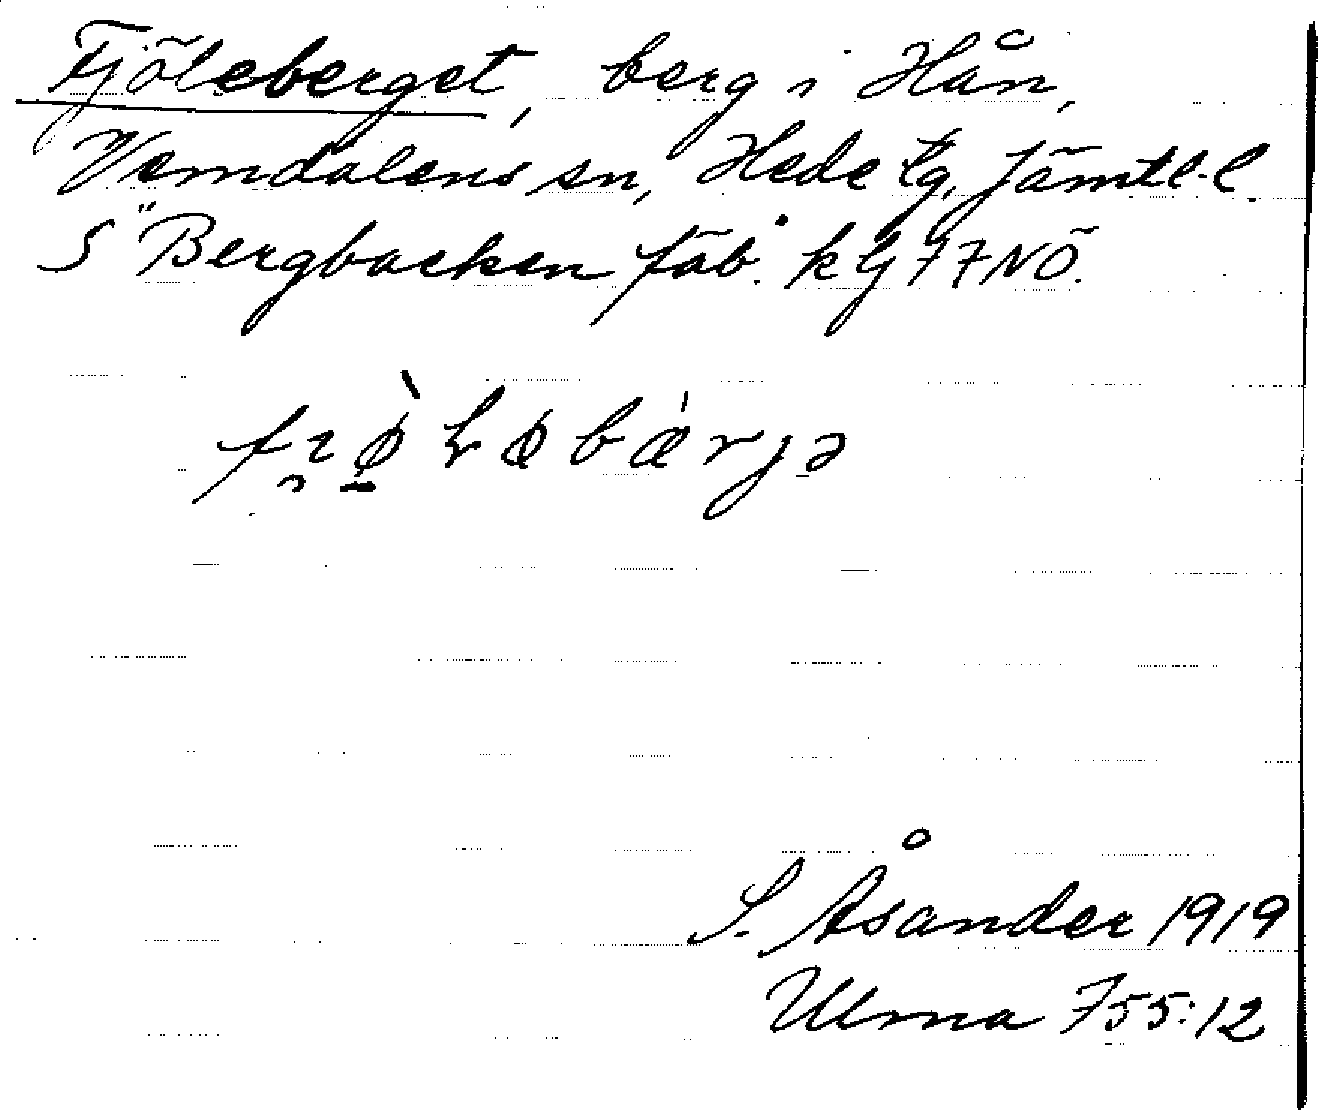 Fjöleberget, berg i Hån,
Vemdalens sn, Hede tg, Jämtl. l.
S "Bergbacken fäb. kG 77NÖ.
fɩø̀ƚøbæ̀rjə
S. Åsander 1919
Ulma 755:12